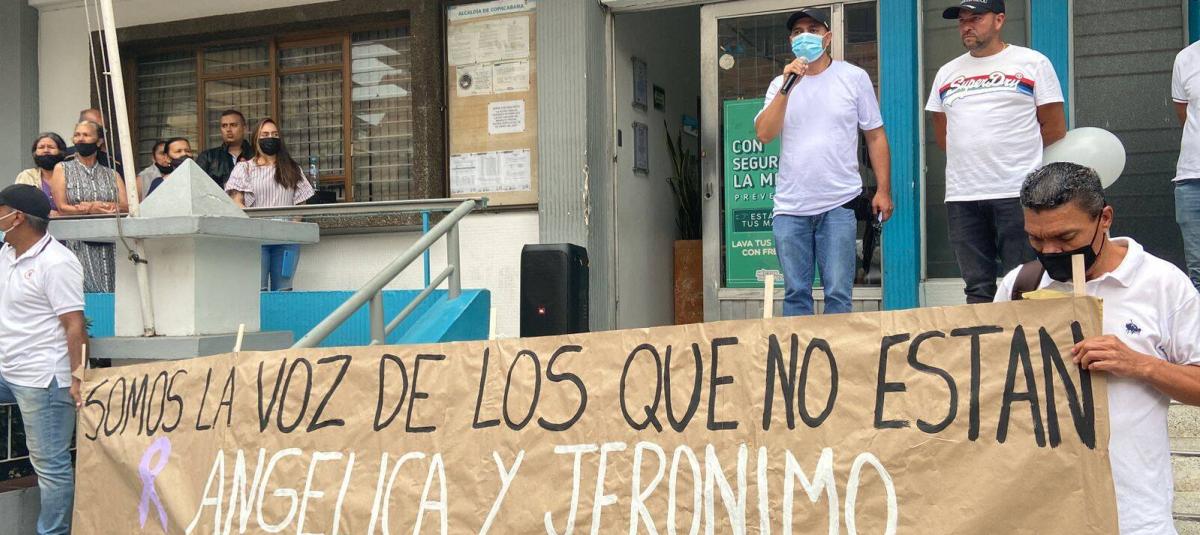 ALCALDÍA DE COPACABANA
CON
SEGUR
LA M
PREVE
ESTÁ
TUS MA
LAVA TUS
CON FRE
SuperDry
SOMOS LA VOZ DE LOS QUE NO ESTAN
ANGELICA Y JERONIMO